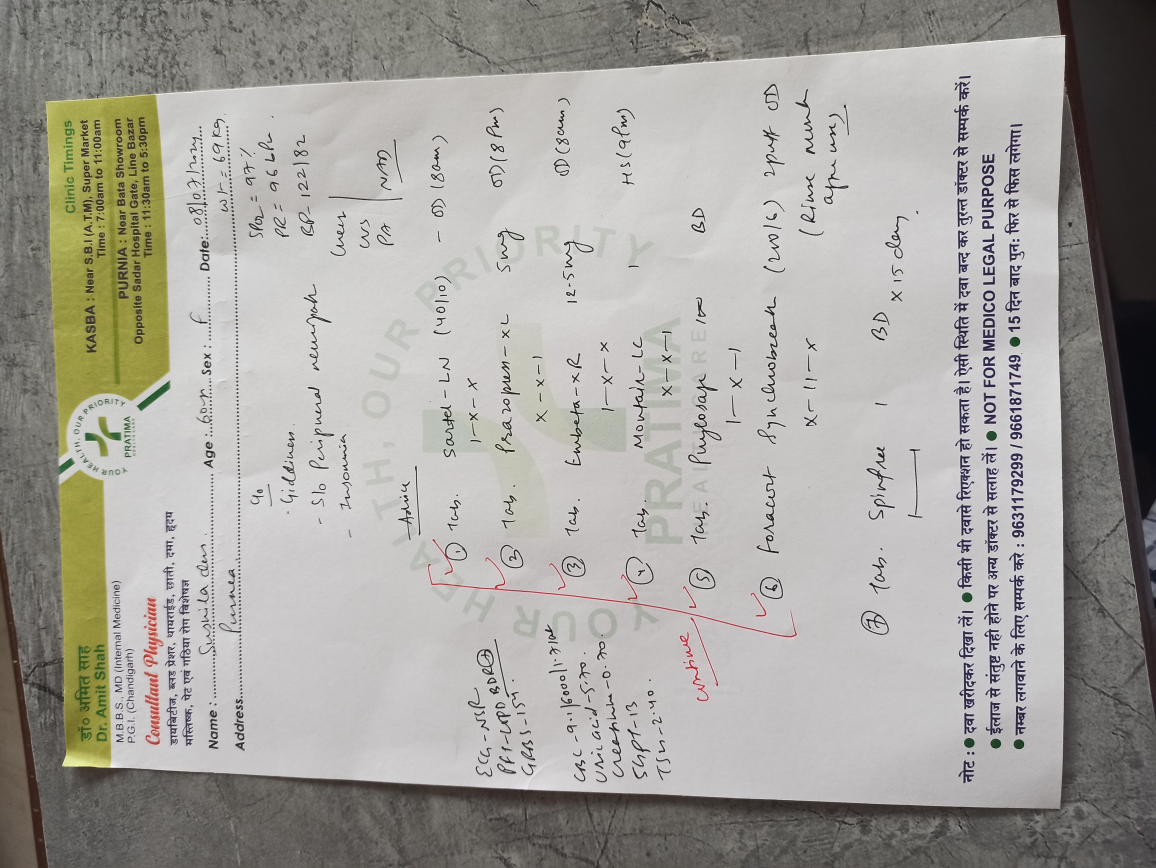 डॉ० अमित साह
Dr. Amit Shah
M.B.B.S., MD (Internal Medicine)
P.G.I. (Chandigarh)
Consultant Physician
डायबिटीज, ब्लड प्रेशर, थायराईड, छाती, दमा, हृदय
मस्तिष्क, पेट एवं गठिया रोग विशेषज्ञ
YOUR HEALTH, OUR PRIORITY
PRATIMA
Clinic Timings
KASBA : Near S.B.I (A.T.M), Super Market
Time : 7:00am to 11:00am
PURNIA : Near Bata Showroom
Opposite Sadar Hospital Gate, Line Bazar
Time : 11:30am to 5:30pm
Name : Sushila Devi Age : 60 Sex : F Date: 08/07/2024
Address Purnea WT = 69 kg
SPO2 = 97%
PR = 96
BP - 122/82
Chest
CVS
PA
NAD
C/o
- Giddiness
- S/o Peripheral
- Insomnia
Advice
ECG - NSR
PFT - BDR +
GRBS - 154
CBC - 9.1/6000/
Uric acid - 5.70
Creatinine - 0.70
SGPT - 13
TSH - 2.40
continue
① Tab. Sartel-LN (40/10) - OD (8am)
1-x-x
② Tab. Prazopress-XL 5mg OD (8pm)
x-x-1
③ Tab. Embeta-XR 12.5mg OD (8am)
1-x-x
④ Tab. Montair-LC 1 HS (9pm)
x-x-1
⑤ Tab. 100 BD
1-x-1
⑥ Foracort Synchrobreath (200/6) 2puff OD
x-11-x (Rinse mouth
after use)
⑦ Tab. Spinfree 1 BD x 15 day
YOUR HEALTH, OUR PRIORITY
PRATIMA
HEALTHCARE
नोट : ● दवा खरीदकर दिखा लें। ● किसी भी दवासे रिएक्शन हो सकता है। ऐसी स्थिति में दवा बन्द कर तुरन्त डॉक्टर से सम्पर्क करें।
● ईलाज से संतुष्ट नही होने पर अन्य डॉक्टर से सलाह लें। ● NOT FOR MEDICO LEGAL PURPOSE
● नम्बर लगवाने के लिए सम्पर्क करे : 9631179299 / 9661871749 ● 15 दिन बाद पुन: फिर से फिस लगेगा।